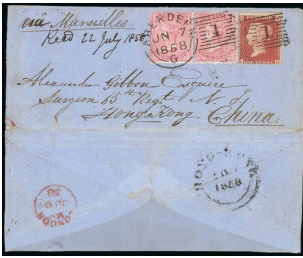 viâ Marseilles
Recd 22 July 1858
ABERDEEN
JN 7
1858
G
1
1
ONE PENNY
Alexander Gibbon Esquire
Surgeon 65th Regt N.I.
Hong Kong
China
HONG KONG
1858
LONDON